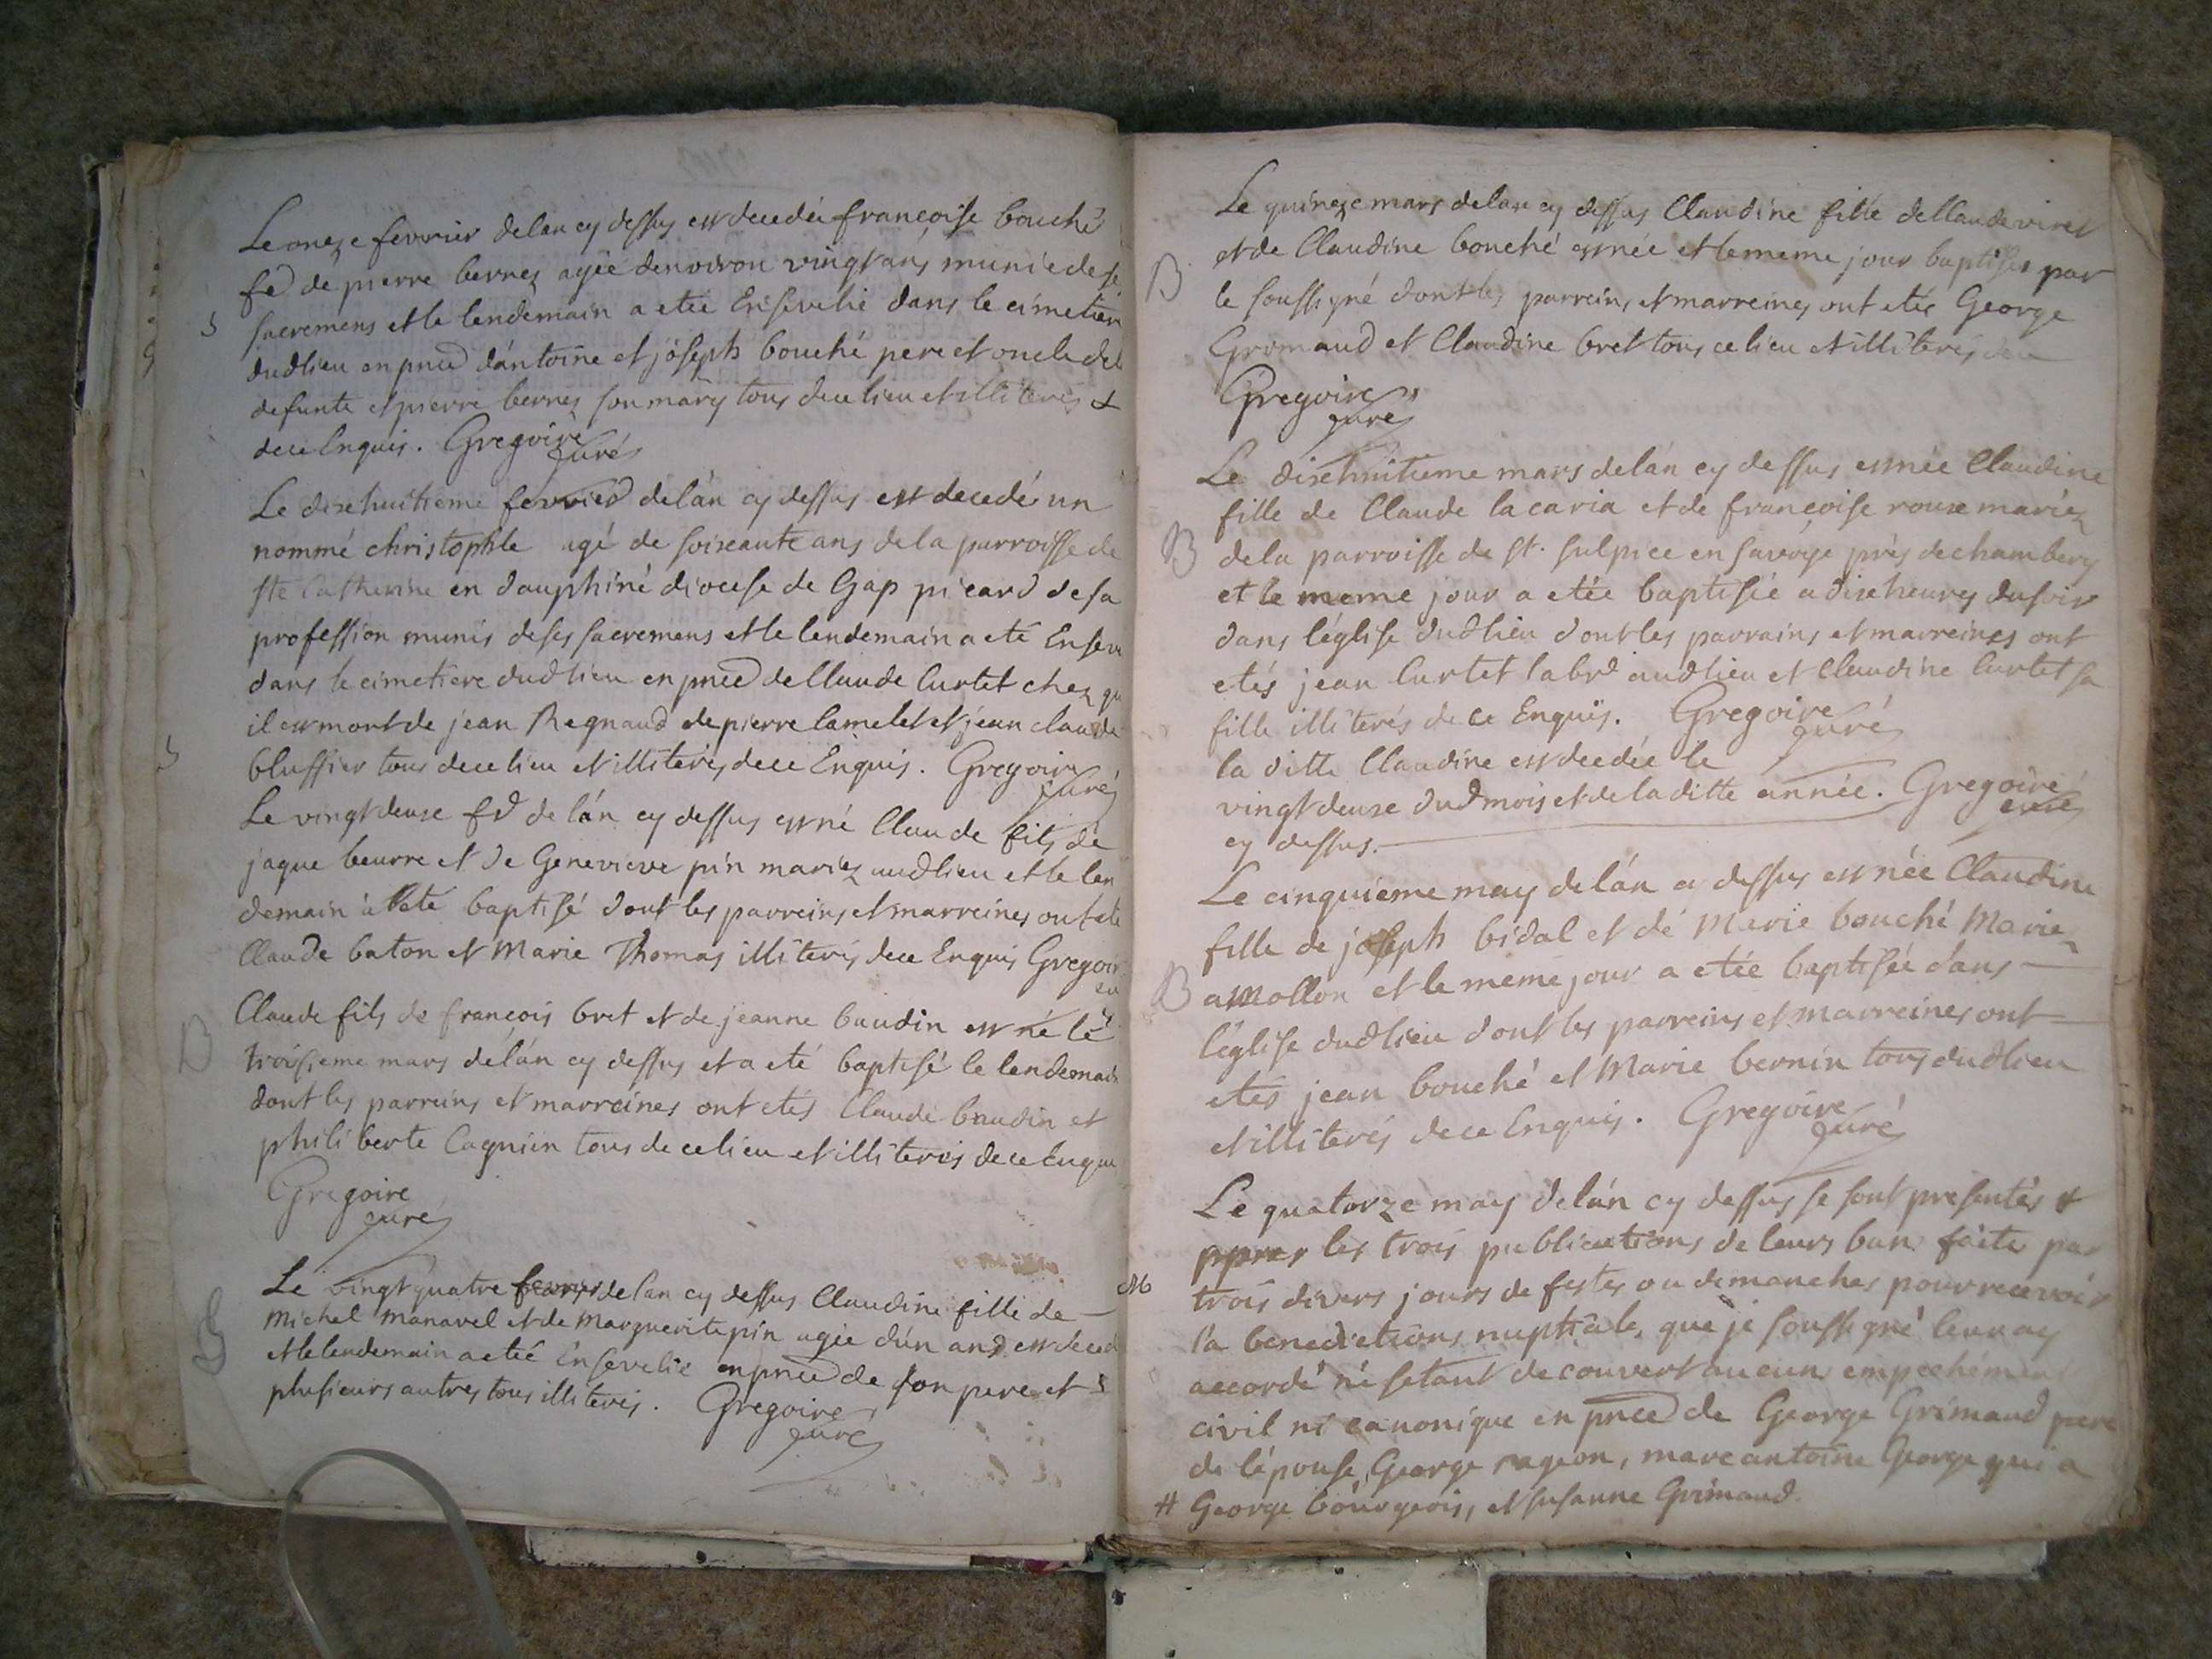 Le onze fevrier delan cy dessus est decedée françoise bouché
fe de pierre bernez agée denviron vingt ans munie de se
S
sacremens et le lendemain a etée Ensevelie dans le cimetier
dudlieu en pnce d'antoine et joseph bouché pere et oncle de
defunte et pierre bernez son mary tous de ce lieu et illiterés &
de ce Enquis. Gregoire
curé
Le dixehuitieme fevrier delán cy dessus est decedé un
nommé christophle agé de soixcante ans de la parroisse de
ste Catherine en dauphiné diocese de Gap picard de sa
profession munis de ses sacremens et le lendemain a eté Enseve
dans le cimetiere dudlieu en pnce de Claude Curtet chez qu
il est mort de jean Regnaud de pierre lamelet et jean claude
S
bluffier tous de ce lieu et illiterés de ce Enquis. Gregoire
curé
Le vingt deuxe fd de lán cy dessus est né Claude fils de
jaque beurre et de Genevieve pin mariez audlieu et le len
demain a eté baptisé dont les parreins et marreines ont eté
Claude baton et Marie Thomas illiterés de ce Enquis Gregoir
cu
B
Claude fils de françois bret et de jeanne baudin est né le
troisieme mars delán cy dessus et a eté baptisé le lendemain
dont les parreins et marreines ont etés Claude baudin et
philiberte Cagnin tous de ce lieu et illiterés de ce Enqui
Gregoire
curé
Le vingt quatre delan cy dessus Claudine fille de
S
michel manavel et de marguerite pin agée d'un and est deced
et le lendemain a etée ensevelie en pnce de son pere et
plusieurs autres tous illiterés. Gregoire
curé
Le quinze mars delan cy dessus Claudine fille de Claude viret
B
et de Claudine bouché est née et le meme jour baptisée par
le soussigné dont les parreins et marreines ont etés George
Gromaud et Claudine bret tous ce lieu et illiterés
Gregoire
curé
Le dixehuitieme mars delán cy dessus est née Claudine
fille de Claude lacaria et de françoise roux mariez
B
de la parroisse de st. sulpice en savoye près de chambery
et le meme jour a etée baptisée a dixe heures du soir
dans léglise dudlieu dont les parrains et marreines ont
etés jean Curtet labr audlieu et Claudine Curtet sa
fille illiterés de ce Enquis. Gregoire
curé
la ditte Claudine est decedée le
vingt deuxe dud mois et de la ditte année. Gregoire
curé
cy dessus.
Le cinquieme may delán a dessus est née Claudine
fille de joseph bidal et de Merie bouché Mariez
B
a Mollon et le meme jour a etée baptisée dans
léglise dudlieu dont les parreins et marreines ont
etés jean bouché et Marie bernin tous dudlieu
et illiterés de ce Enquis. Gregoire
curé
Le quatorze may delán cy dessus se sont presentés &
les trois publications de leurs ban faite par
M
trois divers jours de festes ou dimanches pour recevoir
la benedictions nuptiale, que je soussigné leur ay
accordé né setant decouvert aucun empechement
civil ni canonique en pnce de George Grimaud pere
de lépouse, George rageon, marc antoine George qui a
# George bourgeois, et susanne Grimaud.